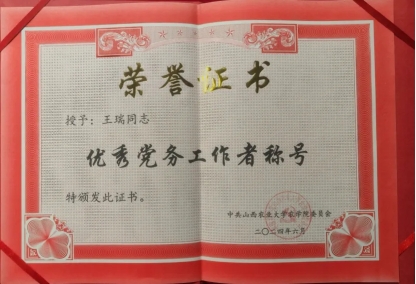 荣誉证书
授予：王瑞同志
优秀党务工作者称号
特颁发此证书。
中共山西农业大学农学院委员会
二〇二四年六月